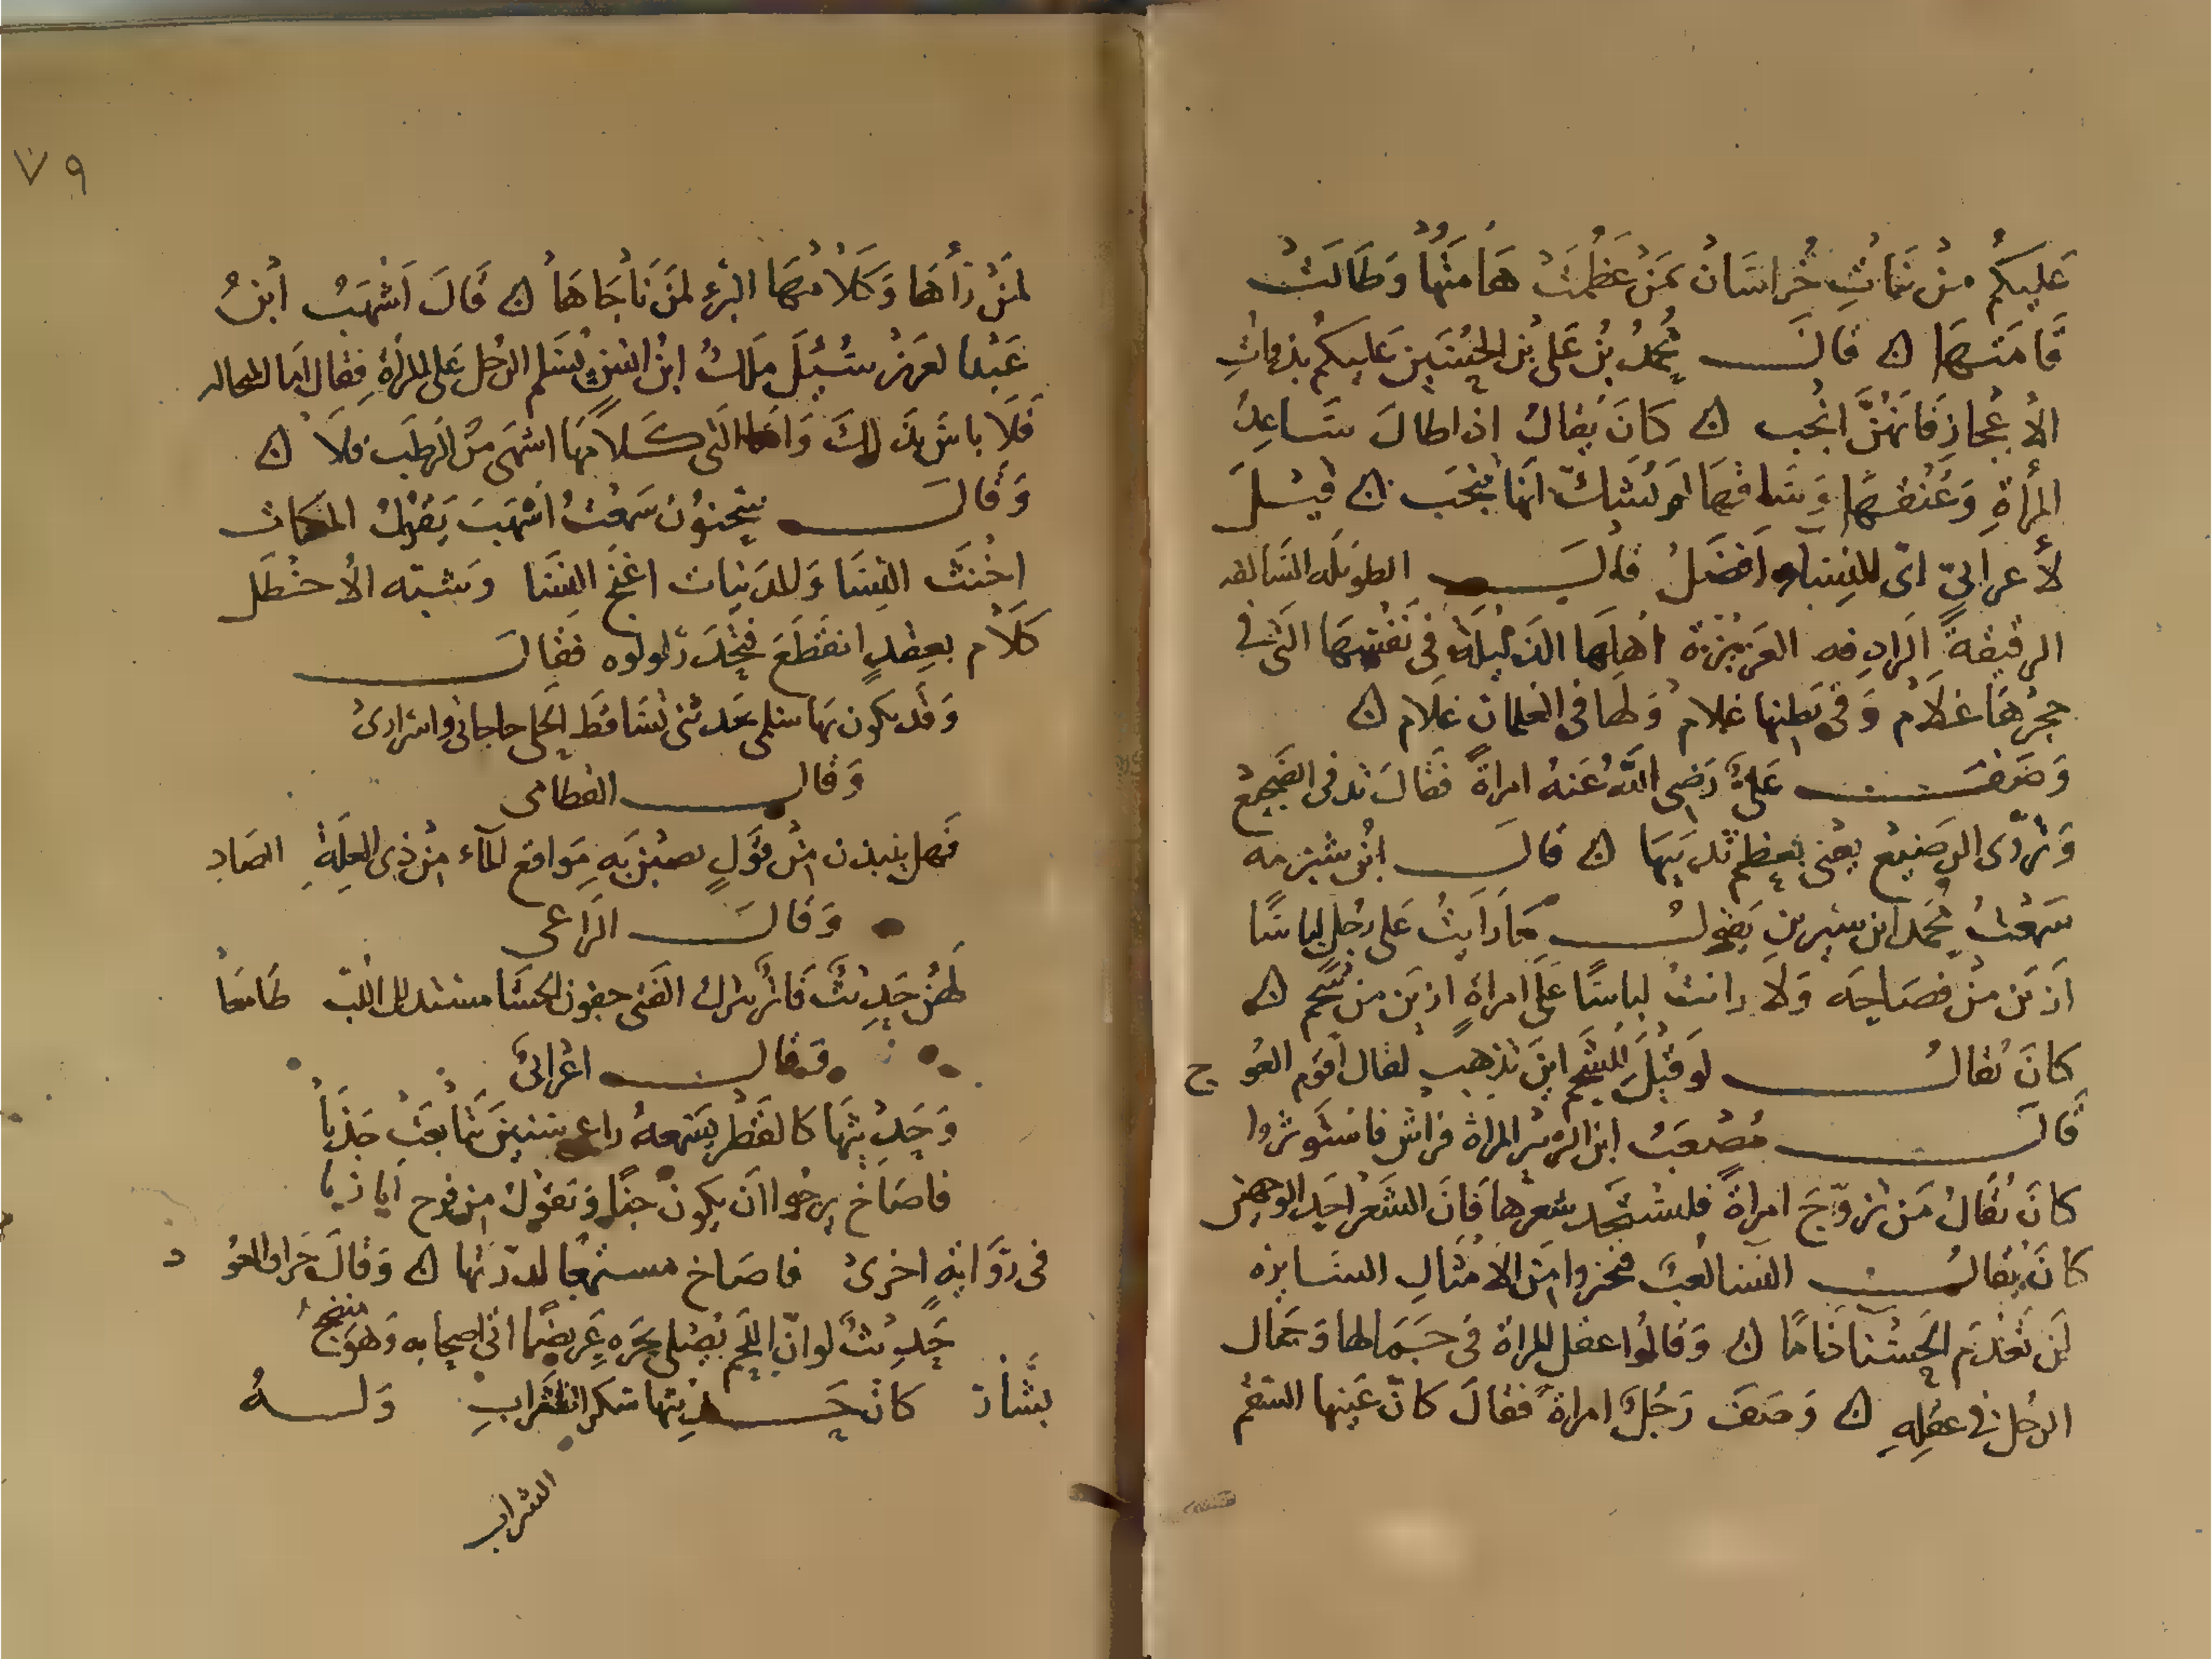 عليكم من بنات خراسان بمن عظمت هامتها وطالت
قامتها ن قال محمد بن علي بن الحسين عليكم بذوات
الاعجاز فانهن انجب ن كان يقال اذا طال ساعد
المرأة وعنقها وساقها لم يشك انها تنجب ن قيل
لأعرابي اي النساء افضل قال الطويلة السالفه
الرقيقة الرادفه العزيزة في اهلها الذليلة في نفسها التي في
حجرها غلام وفي بطنها غلام ولها في الغلمان غلام ن
وصف علي رضي الله عنه امراة فقال تدفي الضجيع
وتروي الرضيع يعني بعظم ثدييها ن قال ابن شبرمه
سمعت محمد ابن سيرين يقول ما رايت على رجل لباسا
ازين من فصاحه ولا رايت لباسا على امراة ازين من شحم ن
كان يقال لو قيل للشحم اين تذهب لقال اقوم العوج
قال مصعب ابن الزبير المراة فراش فاستوثروا
كان يقال من تزوج امراة فليستجد شعرها فان الشعر احد الوجهين
كان يقال النسا لعب فتخيروا من الامثال السايره
لن تعدم الحسنا ذاما ن وقالوا عقل المراة في جمالها وجمال
الرجل في عقله ن وصف رجل امراة فقال كان عينها السقم
٧٩
لمن رأها وكلامها البرء لمن ناجاها ن قال اشهب ابن
عبد العزيز سئل ملك ابن انس يسلم الرجل على المرأة فقال اما المتجاله
فلا باس بذلك واما التي كلامها اشهى من الرطب فلا ن
وقال سحنون سمعت اشهب يقول المكيات
اخنث النسا والمدنيات اغنج النسا وشبه الاخطل
كلام بعقد انقطع فتحدر لولوه فقال
وقد يكون بها سلمى تحدثني تساقط الحلي حاجاتي واسراري
وقال القطامي
فهن ينبذن من قول يصبن به مواقع الماء من ذي الغلة الصاد
وقال الراعي
لهن حديث فاتر يترك الفتى خفوق الحشا مستهلك اللب طامعا
وقال اعرابي
وحديثها كالقطر يسمعه راعي سنين تتابعت جدبا
فاصاخ يرجوا ان يكون حيا ويقول من فرح ايا ربا
في رواية اخرى فاصاخ مستمعا لدرتها ن وقال جران العود
حديث لو ان اللحم يصلى بحره غريضا اتى اصحابه وهو منضج
بشار كان حديثها سكر الشراب وله
الشراب